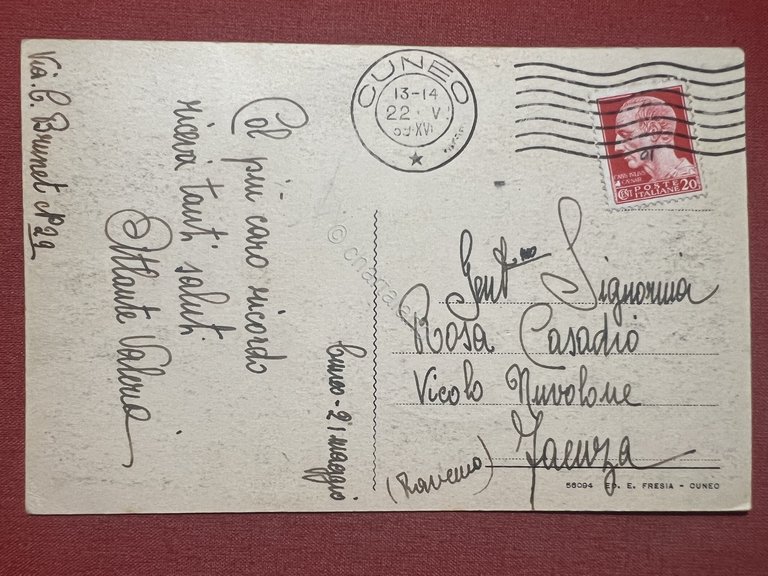 Via. C. Brunet N° 22
Col più caro ricordo
riceva tanti saluti
Valeria
Cuneo - 21 maggio
CUNEO
13-14
22 V
XVI
POSTE
ITALIANE 20
CENT
CAESAR
Gent.ma Signorina
Rosa Casadio
Vicolo Nuvolone
Faenza
(Ravenna)
56094 ED. E. FRESIA - CUNEO